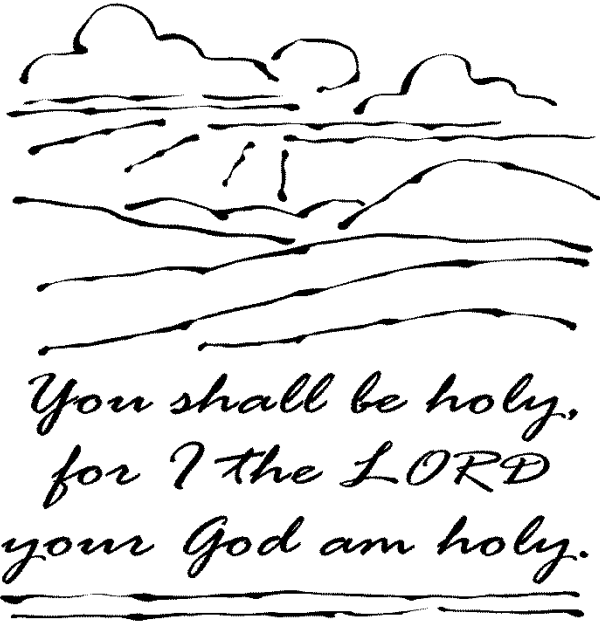 You shall be holy,
for I the LORD
your God am holy.